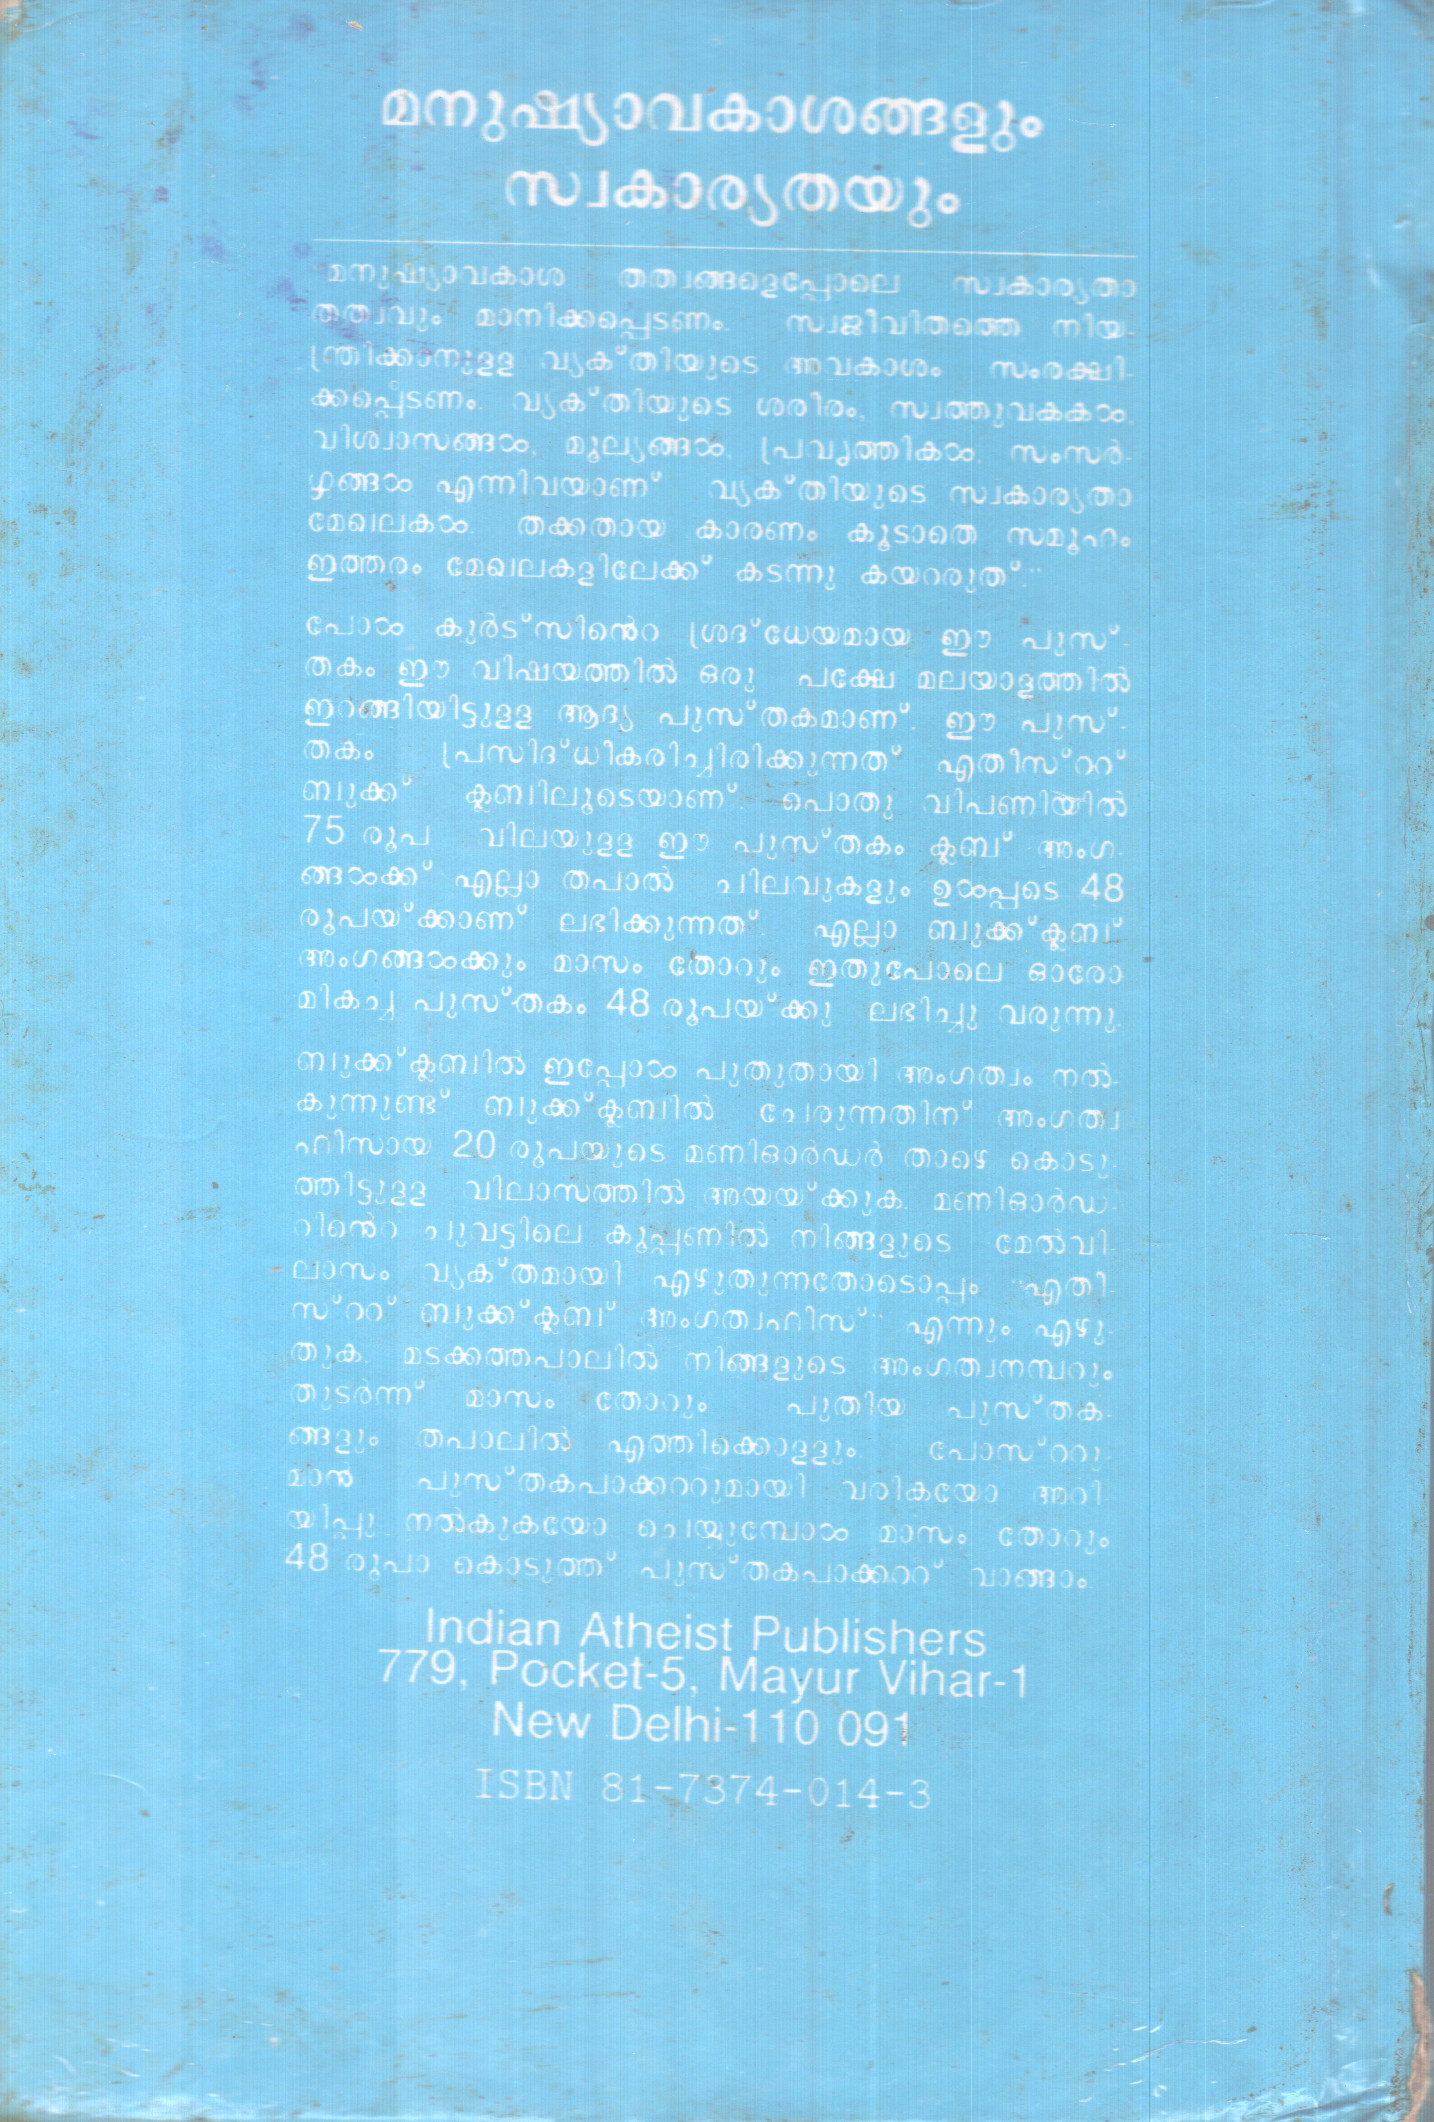 മനുഷ്യാവകാശങ്ങളും
സ്വകാര്യതയും
"മനുഷ്യാവകാശ തത്വങ്ങളെപ്പോലെ സ്വകാര്യതാ
തത്വവും മാനിക്കപ്പെടണം. സ്വജീവിതത്തെ നിയ-
ന്ത്രിക്കാനുള്ള വ്യക്തിയുടെ അവകാശം സംരക്ഷി-
ക്കപ്പെടണം. വ്യക്തിയുടെ ശരീരം, സ്വത്തുവകകൾ,
വിശ്വാസങ്ങൾ, മൂല്യങ്ങൾ, പ്രവൃത്തികൾ, സംസർ-
ഗ്ഗങ്ങൾ എന്നിവയാണ് വ്യക്തിയുടെ സ്വകാര്യതാ
മേഖലകൾ. തക്കതായ കാരണം കൂടാതെ സമൂഹം
ഇത്തരം മേഖലകളിലേക്ക് കടന്നു കയററരുത്."
പോൾ കുർട്സിൻെറ ശ്രദ്ധേയമായ ഈ പുസ്-
തകം ഈ വിഷയത്തിൽ ഒരു പക്ഷേ മലയാളത്തിൽ
ഇറങ്ങിയിട്ടുള്ള ആദ്യ പുസ്തകമാണ്. ഈ പുസ്-
തകം പ്രസിദ്ധീകരിച്ചിരിക്കുന്നത് എതീസ്ററ്
ബുക്ക് ക്ലബ്ബിലൂടെയാണ്. പൊതു വിപണിയിൽ
75 രൂപ വിലയുള്ള ഈ പുസ്തകം ക്ലബ് അംഗ-
ങ്ങൾക്ക് എല്ലാ തപാൽ ചിലവുകളും ഉൾപ്പടെ 48
രൂപയ്ക്കാണ് ലഭിക്കുന്നത്. എല്ലാ ബുക്ക്ക്ലബ്
അംഗങ്ങൾക്കും മാസം തോറും ഇതുപോലെ ഓരോ
മികച്ച പുസ്തകം 48 രൂപയ്ക്കു ലഭിച്ചു വരുന്നു.
ബുക്ക്ക്ലബിൽ ഇപ്പോൾ പുതുതായി അംഗത്വം നൽ-
കുന്നുണ്ട് ബുക്ക്ക്ലബിൽ ചേരുന്നതിന് അംഗത്വ
ഫീസായ 20 രൂപയുടെ മണിഓർഡർ താഴെ കൊടു-
ത്തിട്ടുള്ള വിലാസത്തിൽ അയയ്ക്കുക. മണിഓർഡ-
റിൻെറ ചുവട്ടിലെ കൂപ്പണിൽ നിങ്ങളുടെ മേൽവി-
ലാസം വ്യക്തമായി എഴുതുന്നതോടൊപ്പം "എതി-
സ്ററ് ബുക്ക്ക്ലബ് അംഗത്വഫീസ്" എന്നും എഴു-
തുക. മടക്കത്തപാലിൽ നിങ്ങളുടെ അംഗത്വനമ്പറും
തുടർന്ന് മാസം തോറും പുതിയ പുസ്തക-
ങ്ങളും തപാലിൽ എത്തിക്കൊള്ളും. പോസ്ററു-
മാൻ പുസ്തകപാക്കററുമായി വരികയോ അറി-
യിപ്പു നൽകുകയോ ചെയ്യുമ്പോൾ മാസം തോറും
48 രൂപാ കൊടുത്ത് പുസ്തകപാക്കററ് വാങ്ങാം.
Indian Atheist Publishers
779, Pocket-5, Mayur Vihar-1
New Delhi-110 091
ISBN 81-7374-014-3